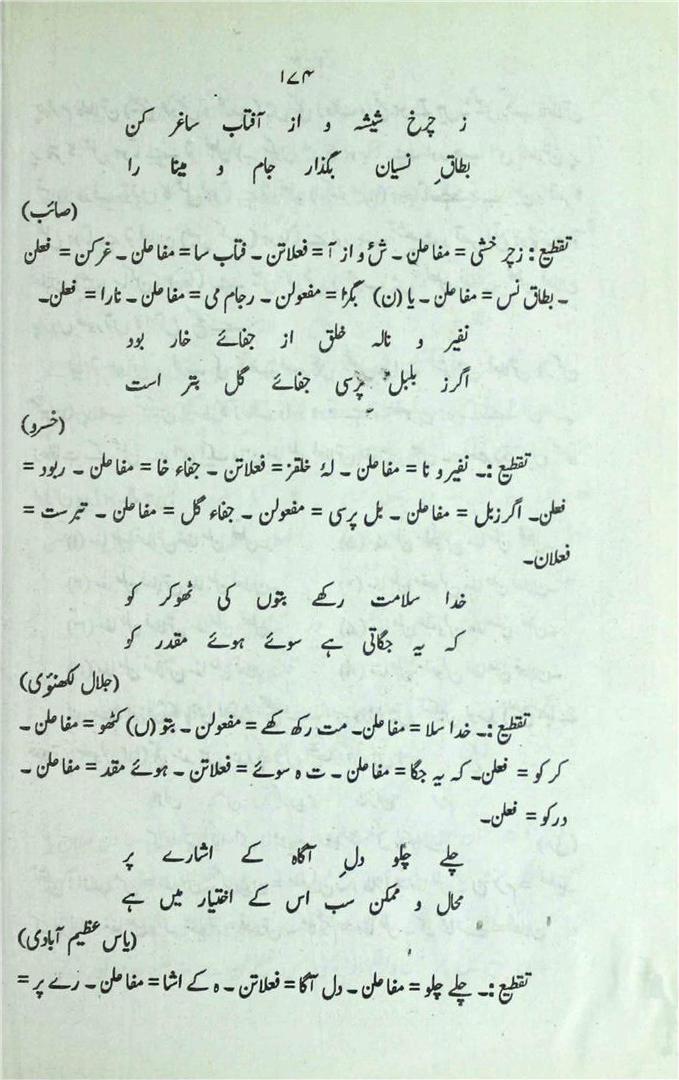 ۱۷۴
ز چرخ شیشہ و از آفتاب ساغر کن
بطاقِ نسیان بگذار جام و مینا را
(صائب)
تقطیع: زچر خشی = مفاعلن ۔ شۂ و از آ = فعلاتن ۔ فتاب سا = مفاعلن ۔ غرکن = فعلن
۔ بطاق نس = مفاعلن ۔ یا (ن) بگزا = مفعولن ۔ رجام می = مفاعلن ۔ نارا = فعلن۔
نفیر و نالہ خلق از جفائے خار بود
اگرز بلبل پرسی جفائے گل بتر است
(خسرو)
تقطیع :۔ نفیر و نا = مفاعلن ۔ لۂ خلقز = فعلاتن ۔ جفاء خا = مفاعلن ۔ ربود =
فعلن۔ اگرزبل = مفاعلن ۔ بل پرسی = مفعولن ۔ جفاء گل = مفاعلن ۔ تبرست =
فعلان۔
خدا سلامت رکھے بتوں کی ٹھوکر کو
کہ یہ جگاتی ہے سوئے ہوئے مقدر کو
(جلال لکھنؤی)
تقطیع :۔ خدا سلا = مفاعلن۔ مت رکھ کھے = مفعولن ۔ بتو (ں) کٹھو = مفاعلن ۔
کر کو = فعلن۔ کہ یہ جگا = مفاعلن ۔ ت ہ سوئے = فعلاتن ۔ ہوئے مقد = مفاعلن ۔
درکو = فعلن۔
چلے چلو دلِ آگاہ کے اشارے پر
محال و ممکن سب اس کے اختیار میں ہے
(یاس عظیم آبادی)
تقطیع :۔ چلے چلو = مفاعلن ۔ دل آگا = فعلاتن ۔ ہ کے اشا = مفاعلن ۔ رے پر =